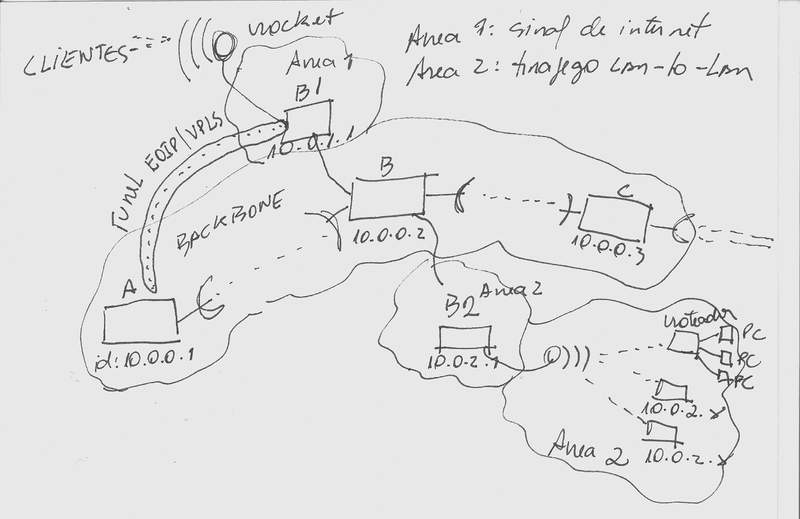 CLIENTES
rocket
Area 1: sinal de internet
Area 2: trafego LAN-to-LAN
Area 1
B1
10.0.1.1
TUNEL EOIP/VPLS
BACKBONE
B
10.0.0.2
C
10.0.0.3
A
id: 10.0.0.1
B2
Area 2
10.0.2.1
roteador
PC
PC
PC
10.0.2.x
10.0.2.x
Area 2